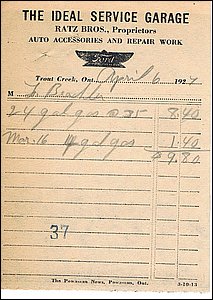 THE IDEAL SERVICE GARAGE
RATZ BROS., Proprietors
AUTO ACCESSORIES AND REPAIR WORK
Ford
Trout Creek, Ont. April 6 1927
M
24 gal gas @ 35 8.40
Mar. 16 4 gal gas 1.40
$9.80
37
The Powassan News, Powassan, Ont. 3-10-13